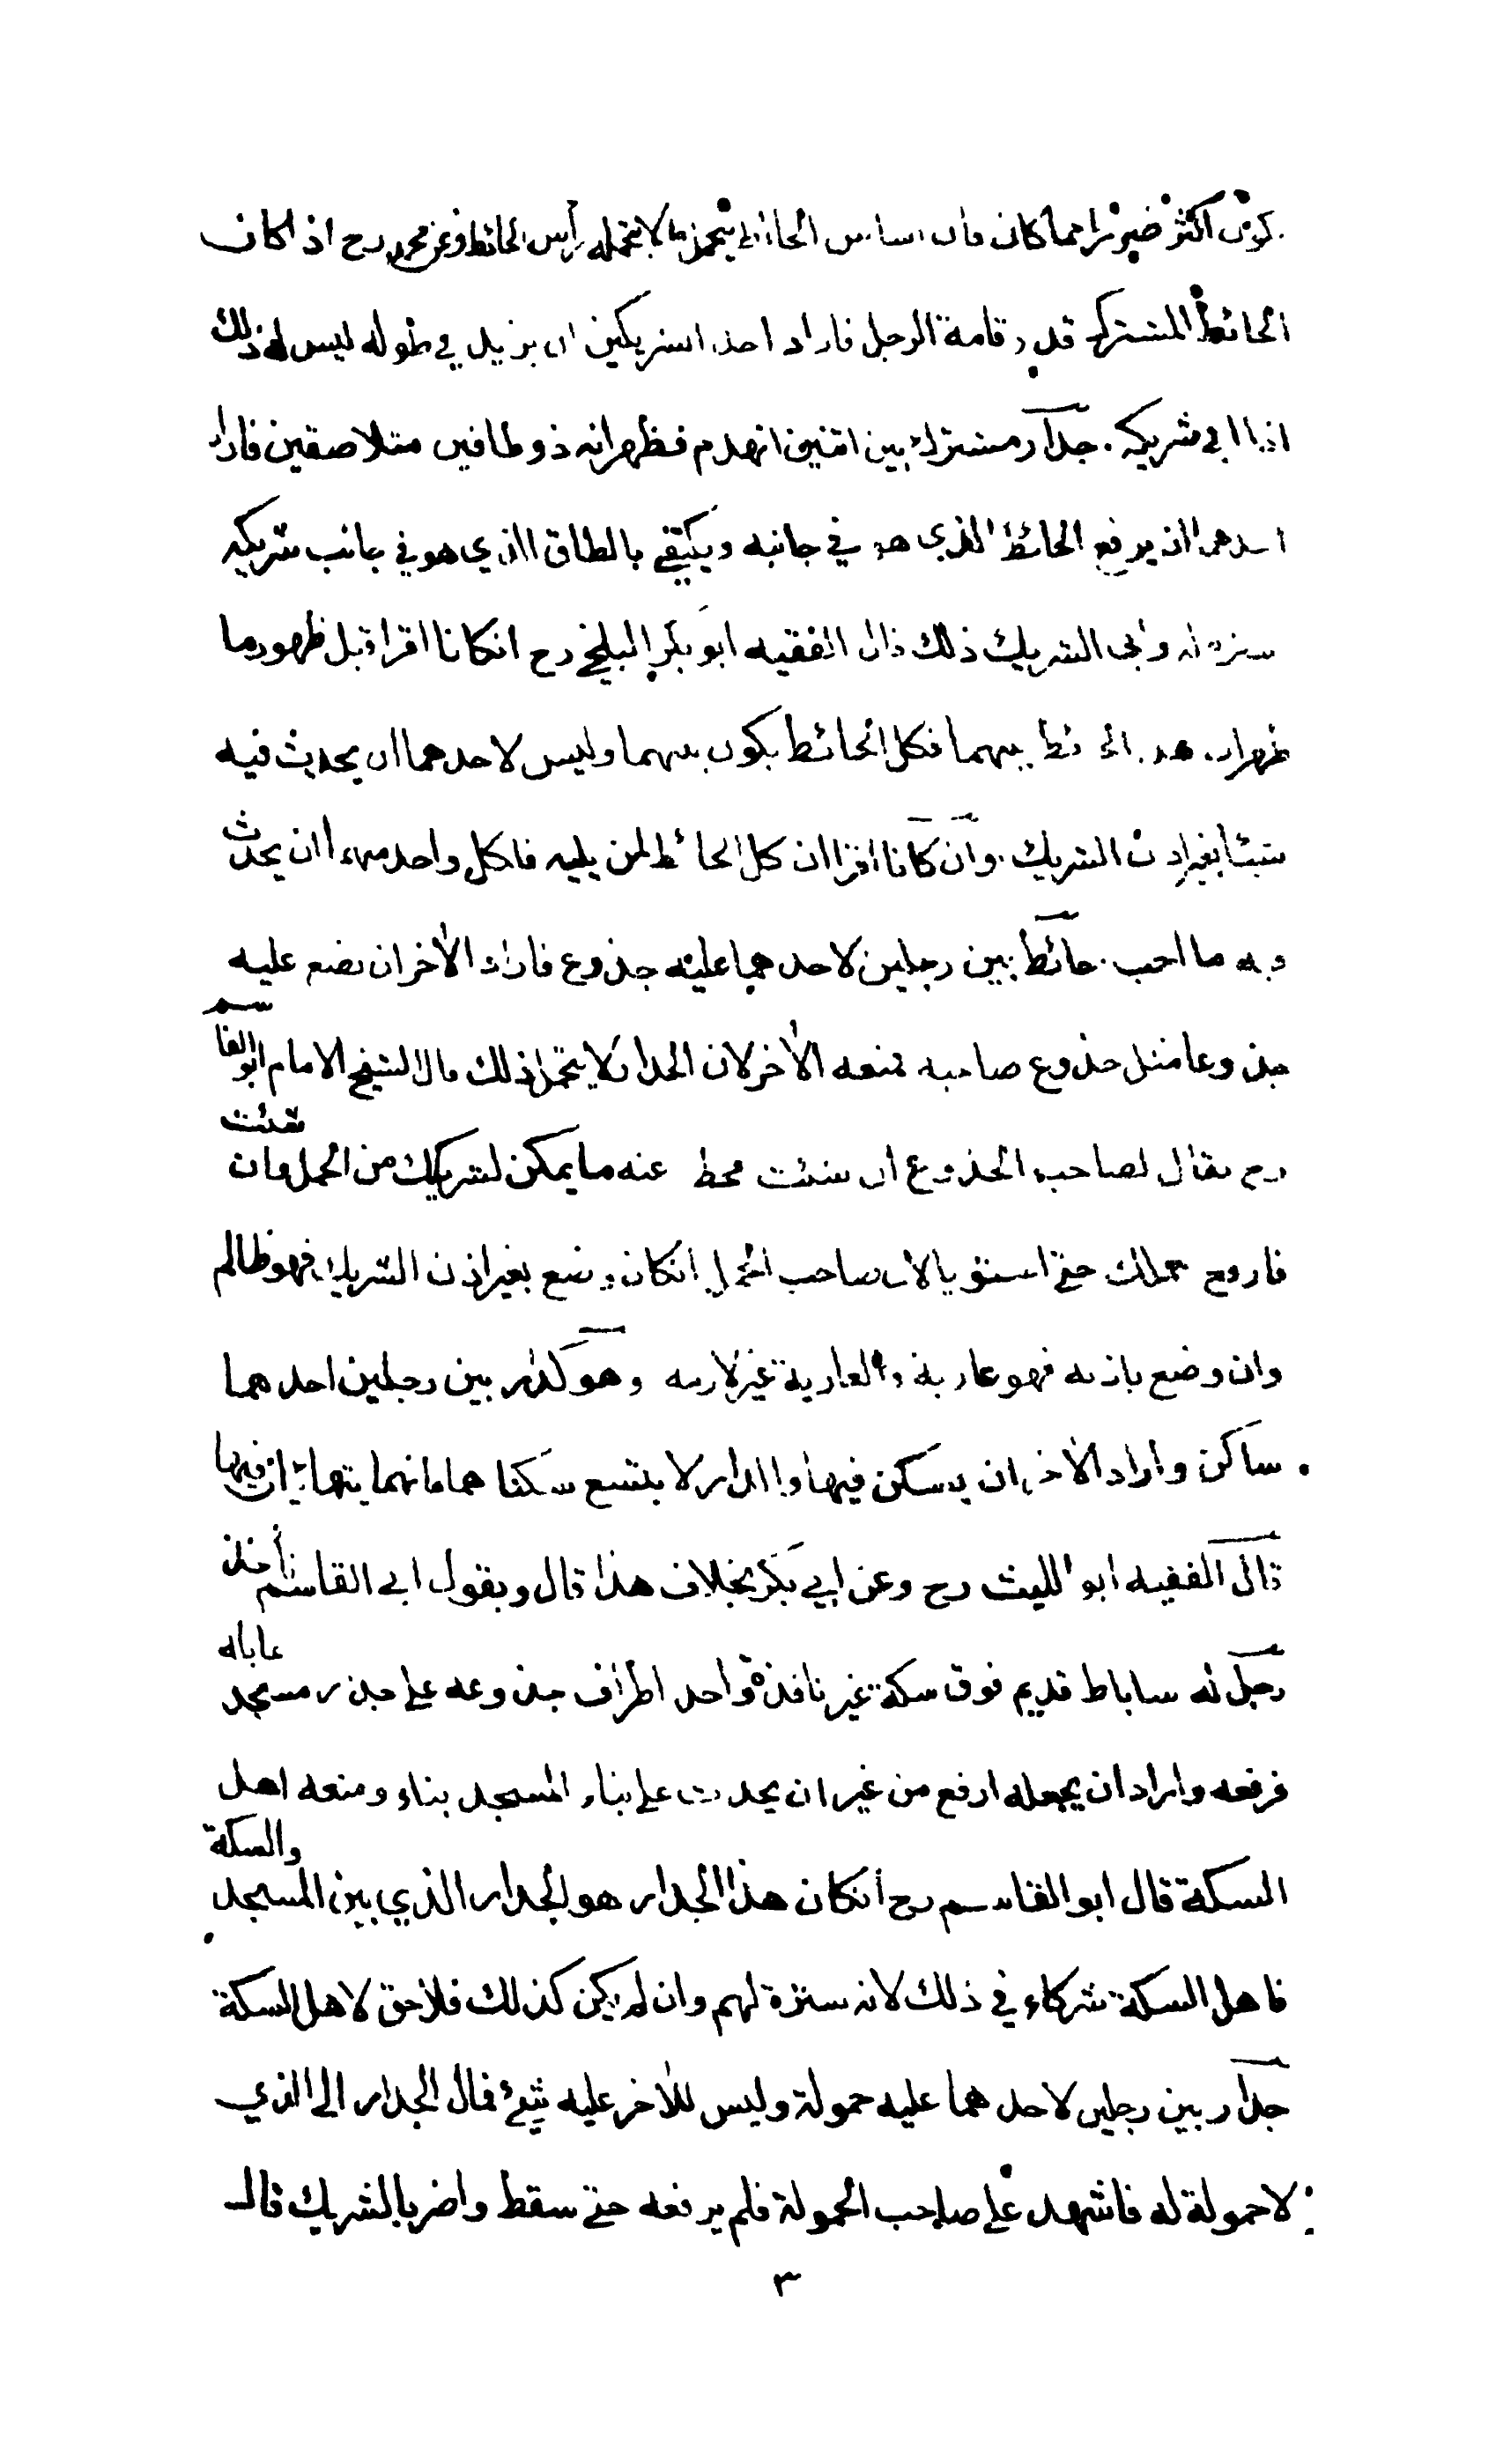 يكون اكثر ضررا مما كان فان اساس الحائط يتحمل ما لا يتحمله رأس الحائط وعن محمد رح اذا كان
الحائط المشترك قدر قامة الرجل فاراد احد الشريكين ان يزيد في طوله ليس له ذلك
اذا ابى شريكه . جدار مشترك بين اثنين انهدم فظهر انه ذو طاقين متلاصقين فاراد
احدهما ان يرفع الحائط الذي هو في جانبه ويكتفي بالطاق الذي هو في جانب شريكه
سترة له وابى الشريك ذلك قال الفقيه ابو بكر البلخي رح ان كانا اقرا قبل ظهور ما
ظهر ان هذا الحائط بينهما فكل الحائط يكون بينهما وليس لاحدهما ان يحدث فيه
شيئا بغير اذن الشريك . وان كانا اقرا ان كل الحائط لمن يليه فلكل واحد منهما ان يحدث
فيه ما احب . حائط بين رجلين لاحدهما عليه جذوع فاراد الآخر ان يضع عليه
جذوعا مثل جذوع صاحبه فمنعه الآخر لان الجدار لا يتحمل ذلك قال الشيخ الامام ابو القاسم
رح يقال لصاحب الجذوع ان شئت فحط عنه ما يمكن لشريكك من الحمل وان شئت
فارفع حملك حتى استويا لان صاحب الحمل ان كان وضع بغير اذن الشريك فهو ظالم
وان وضع باذنه فهو عارية والعارية غير لازمة وهو كدار بين رجلين احدهما
ساكن واراد الآخر ان يسكن فيها والدار لا يتسع سكناهما فانهما يتهايئان فيها
قال الفقيه ابو الليث رح وعن ابي بكر بخلاف هذا قال وبقول ابي القاسم نأخذ
رجل له ساباط قديم فوق سكة غير نافذة واحد اطراف جذوعه على جدار مسجد
فرفعه واراد ان يجعله ارفع من غير ان يحدث على بناء المسجد بناء ومنعه اهل
السكة قال ابو القاسم رح ان كان هذا الجدار هو الجدار الذي بين المسجد والسكة
فاهل السكة شركاء في ذلك لانه سترة لهم وان لم يكن كذلك فلا حق لاهل السكة
جدار بين رجلين لاحدهما عليه حمولة وليس للآخر عليه شيء فمال الجدار الى الذي
لا حمولة له فاشهد على صاحب الحمولة فلم يرفعه حتى سقط واضر بالشريك قال
٣